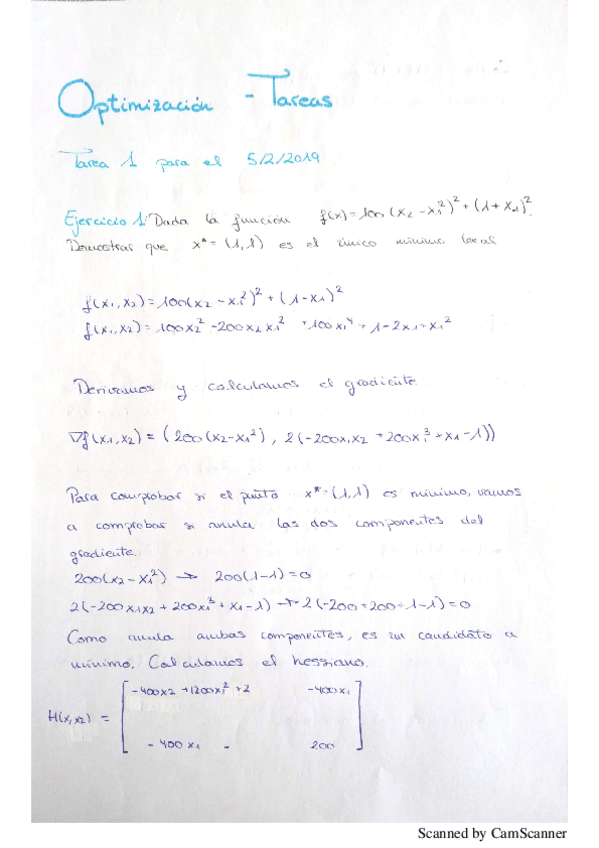 Optimización - Tareas
Tarea 1 para el 5/2/2019
Ejercicio 1: Dada la función f(x)=100(x2-x1²)²+(1+x1)².
Demostrar que x*=(1,1) es el único mínimo local
f(x1,x2)=100(x2-x1²)²+(1-x1)²
f(x1,x2)=100x2²-200x2x1²+100x1⁴+1-2x1+x1²
Derivamos y calculamos el gradiente
∇f(x1,x2)=(200(x2-x1²), 2(-200x1x2+200x1³+x1-1))
Para comprobar si el punto x*=(1,1) es mínimo, vamos
a comprobar si anula las dos componentes del
gradiente.
200(x2-x1²) → 200(1-1)=0
2(-200x1x2+200x1³+x1-1) → 2(-200+200+1-1)=0
Como anula ambas componentes, es un candidato a
mínimo. Calculamos el hessiano.
-400x2+1200x1²+2 -400x1
H(x1,x2) =
-400x1 - 200
Scanned by CamScanner